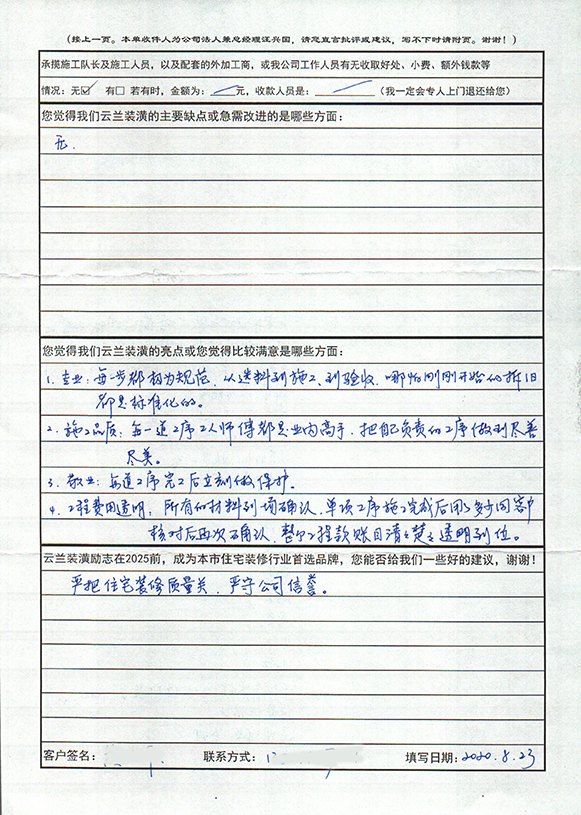 (接上一页。本单收件人为公司法人兼总经理汪兴国，请您直言批评或建议，写不下时请附页。谢谢！)
承揽施工队长及施工人员，以及配套的外加工商，或我公司工作人员有无收取好处、小费、额外钱款等
情况：无☑ 有□ 若有时，金额为：元，收款人员是：（我一定会专人上门退还给您）
您觉得我们云兰装潢的主要缺点或急需改进的是哪些方面：
无.
您觉得我们云兰装潢的亮点或您觉得比较满意是哪些方面：
1. 专业：每一步都极为规范，从选料到施工、到验收，哪怕刚刚开始的拆旧
都是标准化的。
2. 施工品质：每一道工序工人师傅都是业内高手，把自己负责的工序做到尽善
尽美。
3. 敬业：每道工序完工后立刻做保护.
4. 工程费用透明，所有的材料到场确认，单项工序施工完成后用了多少同客户
核对后再次确认，整个工程款账目清清楚楚透明到位。
云兰装潢励志在2025前，成为本市住宅装修行业首选品牌，您能否给我们一些好的建议，谢谢！
严把住宅装修质量关，严守公司信誉。
客户签名： 联系方式： 填写日期：2020.8.23